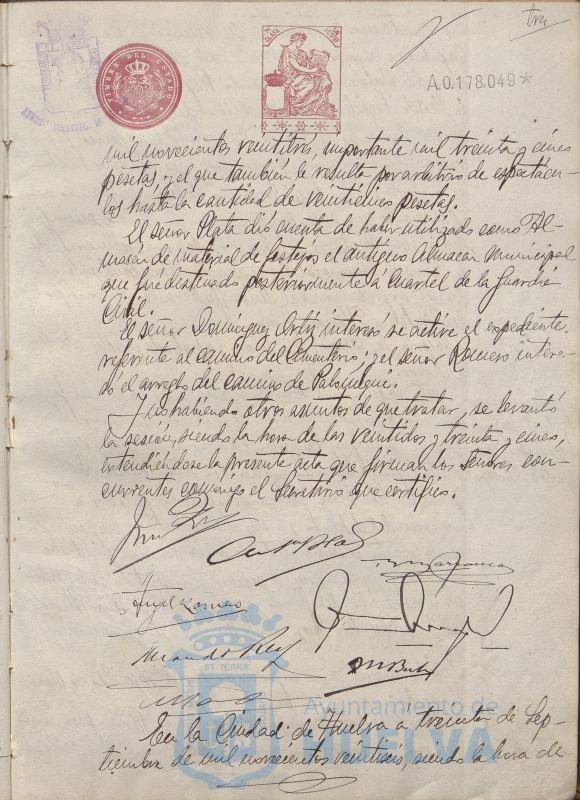 tres
TIMBRE DEL ESTADO
CLASE
A.0.178.049*
mil novecientos veintitres, importante mil treinta y cinco
pesetas y el que tambien le resulta por arbitrio de espectácu-
los hasta la cantidad de veinticinco pesetas.
El señor Plata dió cuenta de haber utilizado como Al-
macén de material de festejos el antiguo Almacén Municipal
que fué destinado posteriormente á Cuartel de la Guardia
Civil.
El señor Dominguez Ortiz interesó se active el expediente
referente al camino del Cementerio; y el señor Romero intere-
só el arreglo del camino de
Y no habiendo otros asuntos de que tratar, se levantó
la sesión, siendo la hora de las veintidos y treinta y cinco,
extendiéndose la presente acta que firman los Señores con-
currentes conmigo el Secretario que certifico.
Angel Romero
ET TERRÆ
Ayuntamiento de
HUELVA
En la Ciudad de Huelva a treinta de Sep-
tiembre de mil novecientos veintiseis, siendo la hora de